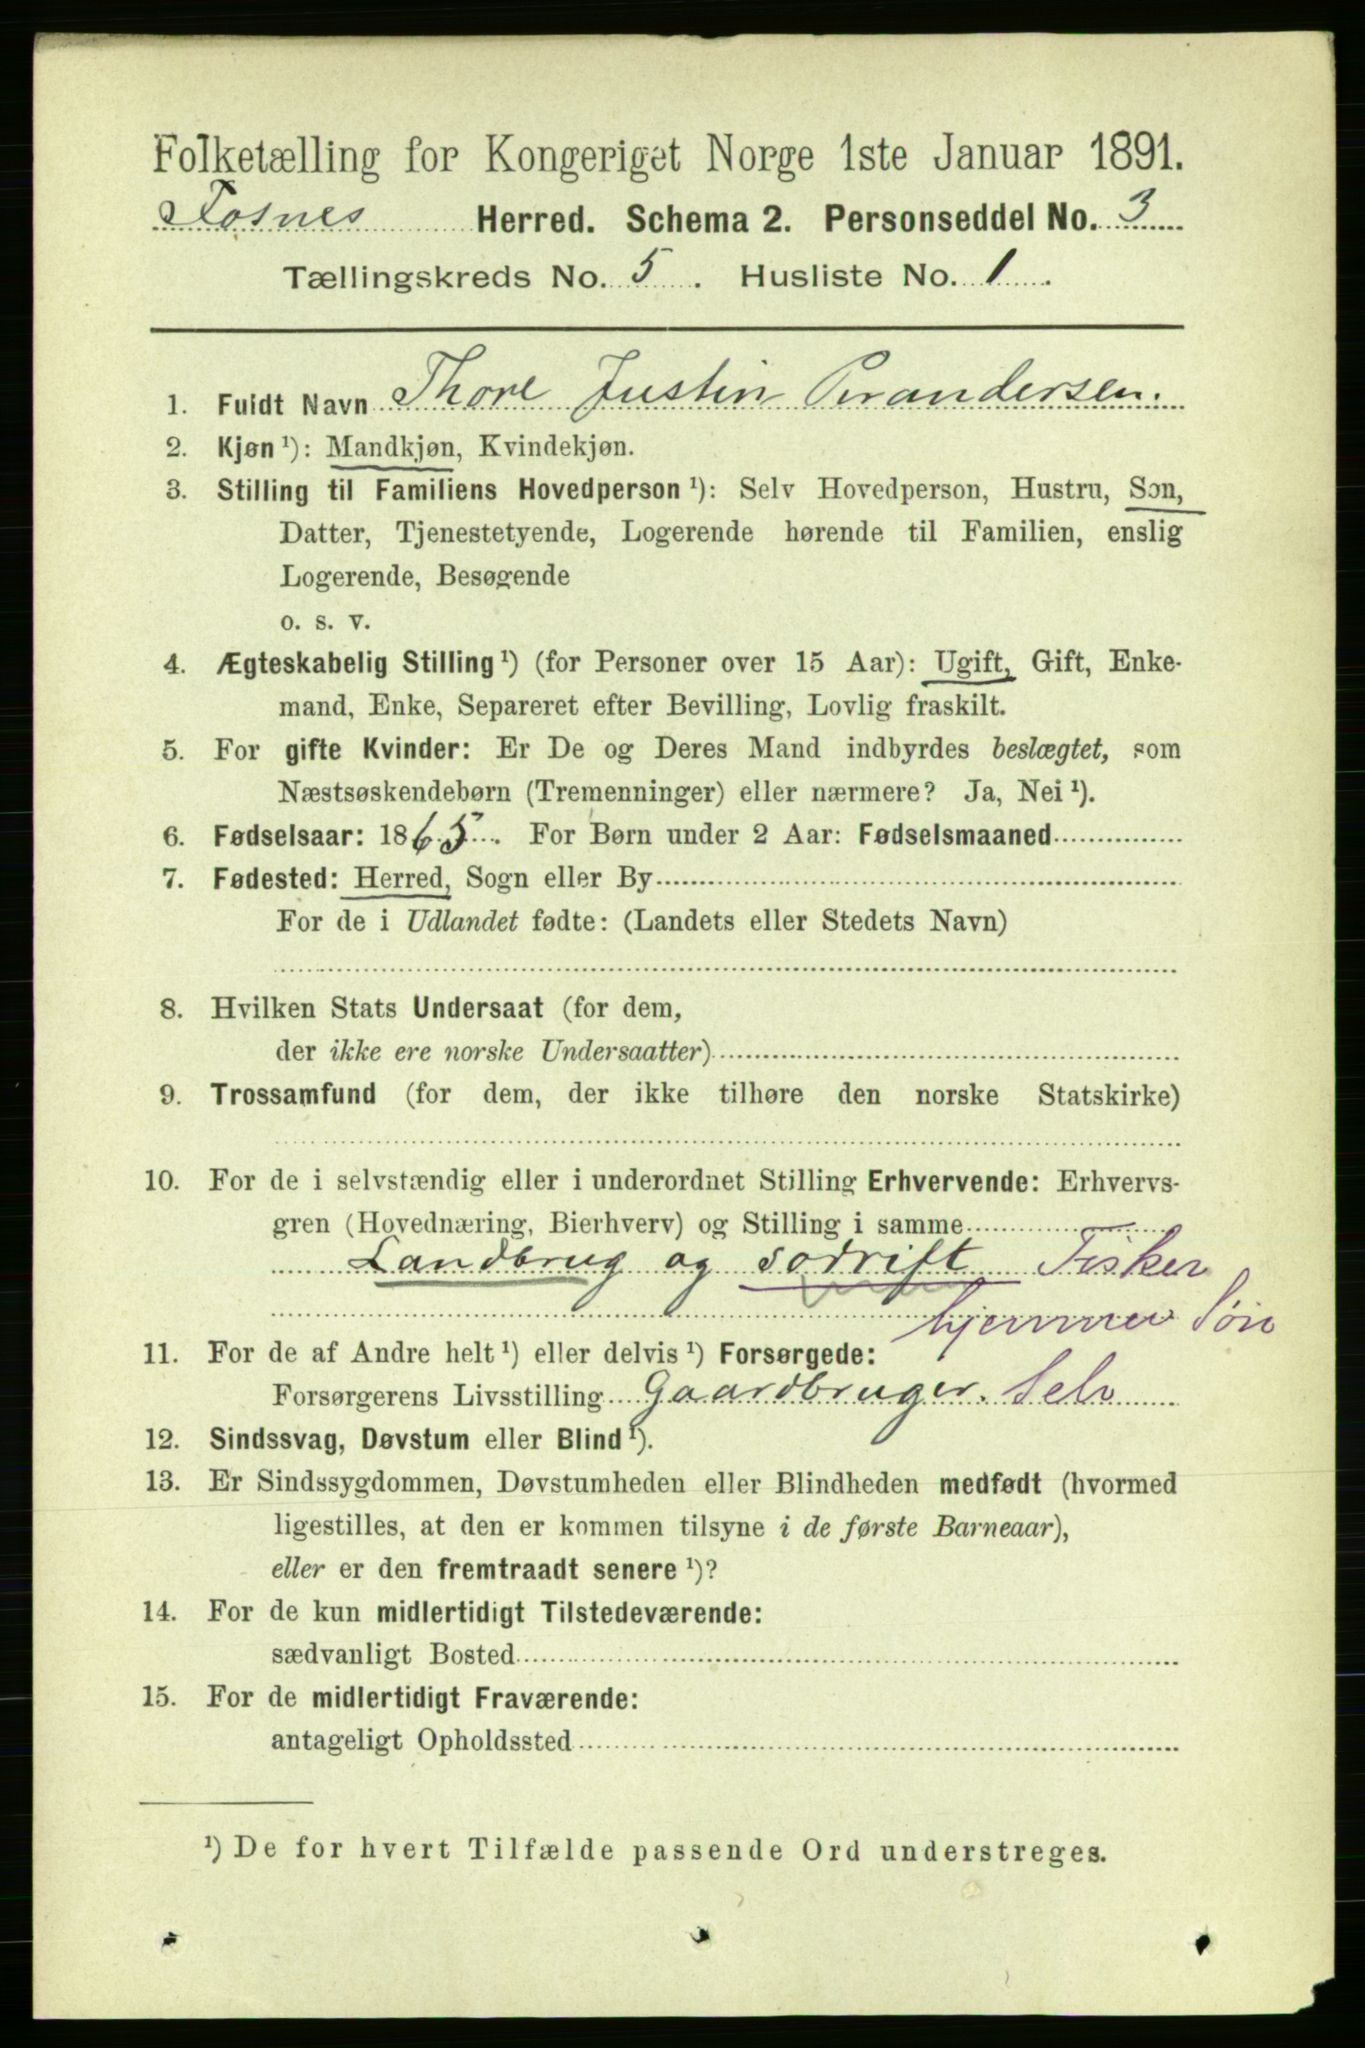 Folketælling for Kongeriget Norge 1ste Januar 1891.
Fosnes Herred. Schema 2. Personseddel No. 3
Tællingskreds No. 5. Husliste No. 1.
1. Fuldt Navn Thore Justin Perandersen.
2. Kjøn ¹): Mandkjøn, Kvindekjøn.
3. Stilling til Familiens Hovedperson ¹): Selv Hovedperson, Hustru, Søn,
Datter, Tjenestetyende, Logerende hørende til Familien, enslig
Logerende, Besøgende
o. s. v.
4. Ægteskabelig Stilling ¹) (for Personer over 15 Aar): Ugift, Gift, Enke-
mand, Enke, Separeret efter Bevilling, Lovlig fraskilt.
5. For gifte Kvinder: Er De og Deres Mand indbyrdes beslægtet, som
Næstsøskendebørn (Tremenninger) eller nærmere? Ja, Nei ¹).
6. Fødselsaar: 1865. For Børn under 2 Aar: Fødselsmaaned
7. Fødested: Herred, Sogn eller By
For de i Udlandet fødte: (Landets eller Stedets Navn)
8. Hvilken Stats Undersaat (for dem,
der ikke ere norske Undersaatter)
9. Trossamfund (for dem, der ikke tilhøre den norske Statskirke)
10. For de i selvstændig eller i underordnet Stilling Erhvervende: Erhvervs-
gren (Hovednæring, Bierhverv) og Stilling i samme
Landbrug og sødrift Fisker
hjemmev Søn
11. For de af Andre helt ¹) eller delvis ¹) Forsørgede:
Forsørgerens Livsstilling Gaardbruger. Selv
12. Sindssvag, Døvstum eller Blind ¹).
13. Er Sindssygdommen, Døvstumheden eller Blindheden medfødt (hvormed
ligestilles, at den er kommen tilsyne i de første Barneaar),
eller er den fremtraadt senere ¹)?
14. For de kun midlertidigt Tilstedeværende:
sædvanligt Bosted
15. For de midlertidigt Fraværende:
antageligt Opholdssted
¹) De for hvert Tilfælde passende Ord understreges.